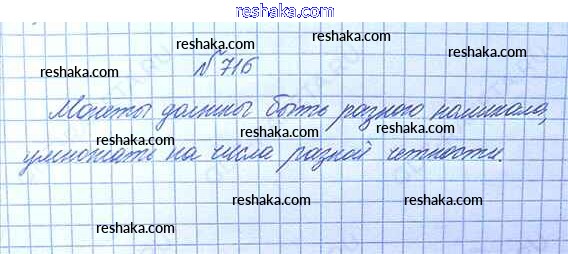 reshaka.com
№ 716
Монеты должны быть разного номинала,
умножать на числа разной четности.
reshaka.com
reshaka.com
reshaka.com
reshaka.com
reshaka.com
reshaka.com
reshaka.com
reshaka.com
reshaka.com
reshaka.com
reshaka.com
reshaka.com